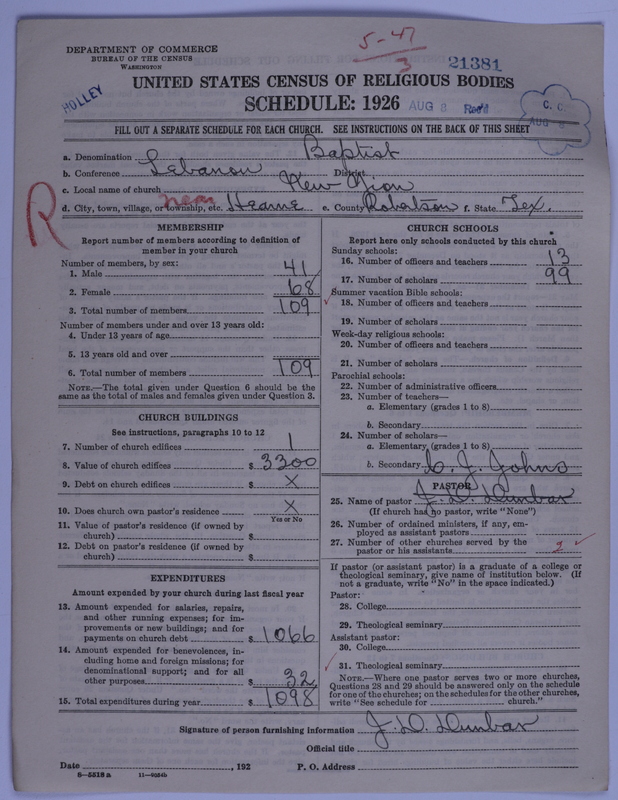 5-47
3
21381
DEPARTMENT OF COMMERCE
BUREAU OF THE CENSUS
WASHINGTON
HOLLEY
UNITED STATES CENSUS OF RELIGIOUS BODIES
SCHEDULE: 1926
AUG 8 Rec'd
C. C.
AUG 8
FILL OUT A SEPARATE SCHEDULE FOR EACH CHURCH. SEE INSTRUCTIONS ON THE BACK OF THIS SHEET
a. Denomination Baptist
b. Conference Lebanon District
c. Local name of church New Zion
R
d. City, town, village, or township, etc. near Hearne e. County Robertson f. State Tex.
MEMBERSHIP
Report number of members according to definition of
member in your church
Number of members, by sex:
1. Male 41
2. Female 68
3. Total number of members 109
Number of members under and over 13 years old:
4. Under 13 years of age
5. 13 years old and over
6. Total number of members 109
NOTE.—The total given under Question 6 should be the
same as the total of males and females given under Question 3.
CHURCH BUILDINGS
See instructions, paragraphs 10 to 12
7. Number of church edifices 1
8. Value of church edifices $ 3300
9. Debt on church edifices $ X
10. Does church own pastor's residence X
Yes or No
11. Value of pastor's residence (if owned by
church) $
12. Debt on pastor's residence (if owned by
church) $
EXPENDITURES
Amount expended by your church during last fiscal year
13. Amount expended for salaries, repairs,
and other running expenses; for im-
provements or new buildings; and for
payments on church debt $ 1066
14. Amount expended for benevolences, in-
cluding home and foreign missions; for
denominational support; and for all
other purposes $ 32
15. Total expenditures during year $ 1098
CHURCH SCHOOLS
Report here only schools conducted by this church
Sunday schools:
16. Number of officers and teachers 13
17. Number of scholars 99
Summer vacation Bible schools:
18. Number of officers and teachers
19. Number of scholars
Week-day religious schools:
20. Number of officers and teachers
21. Number of scholars
Parochial schools:
22. Number of administrative officers
23. Number of teachers—
a. Elementary (grades 1 to 8)
b. Secondary
24. Number of scholars—
a. Elementary (grades 1 to 8)
b. Secondary C. J. Johns
PASTOR
25. Name of pastor J. D. Dunbar
(If church has no pastor, write "None")
26. Number of ordained ministers, if any, em-
ployed as assistant pastors
27. Number of other churches served by the
pastor or his assistants 2
If pastor (or assistant pastor) is a graduate of a college or
theological seminary, give name of institution below. (If
not a graduate, write "No" in the space indicated.)
Pastor:
28. College
29. Theological seminary
Assistant pastor:
30. College
31. Theological seminary
NOTE.—Where one pastor serves two or more churches,
Questions 28 and 29 should be answered only on the schedule
for one of the churches; on the schedules for the other churches,
write "See schedule for church."
Signature of person furnishing information J. D. Dunbar
Official title
Date , 192 P. O. Address
8—5518 a 11—9054b